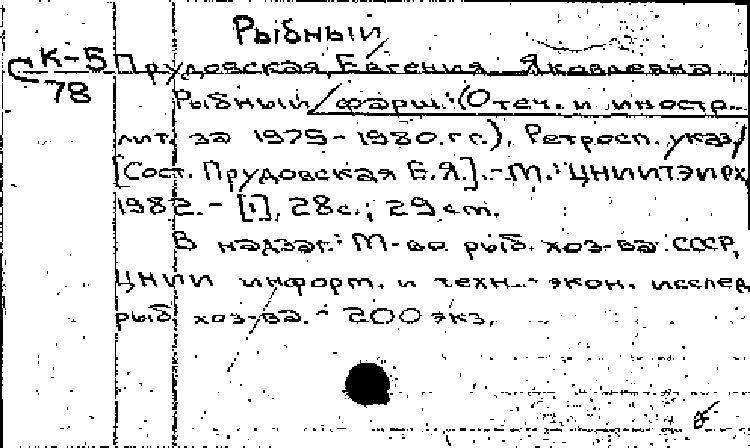 Рыбный
К-5 Прудовская, Евгения Яковлевна
78
Рыбный фарш: (Отеч. и иностр.
лит. за 1979-1980.гг.). Ретросп. указ/
[Сост. Прудовская Е.Я.].-М.: ЦНИИТЭИРХ
1982.- [1], 28с.; 29 cm.
В надзаг.: М-во рыб. хоз-ва СССР,
ЦНИИ информ. и техн.-экон. исслед
рыб. хоз-ва.- 200 экз.
б